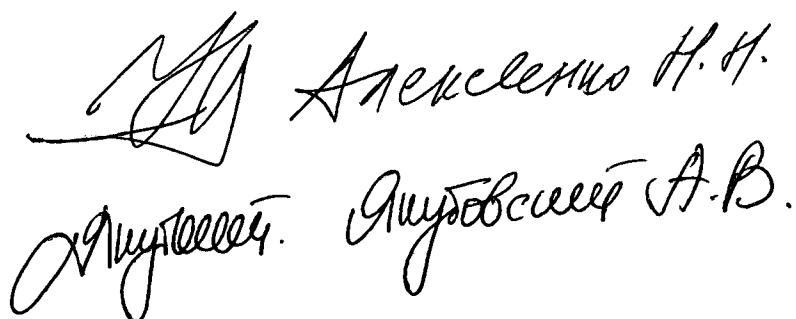 Алексеенко Н. Н.
Якубовский А. В.